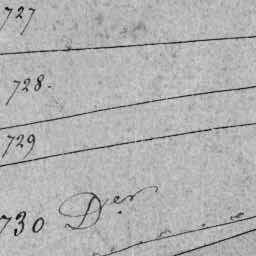 727
728.
729
730 Der